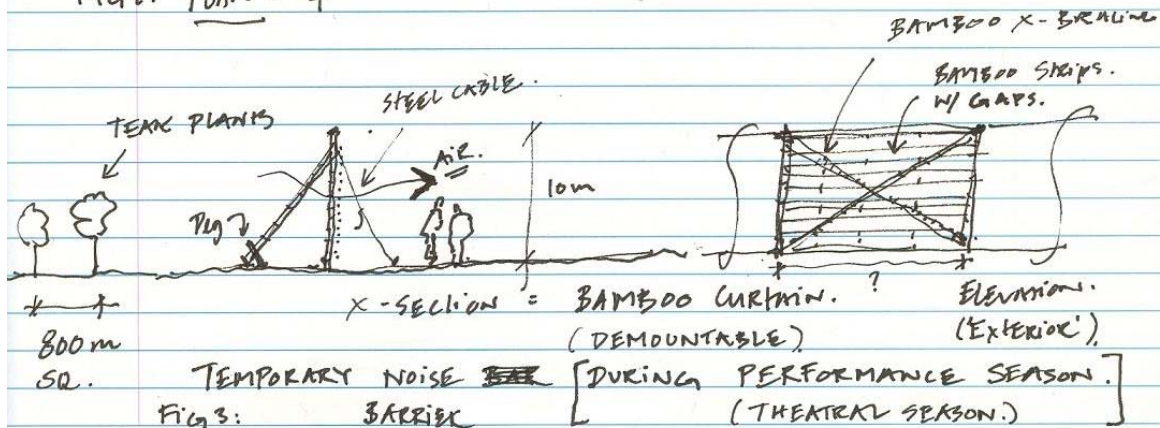 BAMBOO X-BRACING
BAMBOO STRIPS.
W/ GAPS.
STEEL CABLE.
TEAK PLANTS
AIR.
Peg
10m
800m
SQ.
X-SECTION = BAMBOO CURTAIN.
(DEMOUNTABLE)
?
ELEVATION.
('EXTERIOR')
TEMPORARY NOISE
BARRIER
[DURING PERFORMANCE SEASON.]
(THEATRAL SEASON.)
Fig 3: